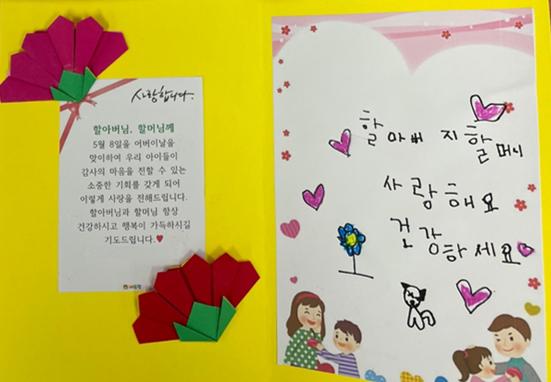 사랑합니다.
할아버님, 할머님께
5월 8일을 어버이날을
맞이하여 우리 아이들이
감사의 마음을 전할 수 있는
소중한 기회를 갖게 되어
이렇게 사랑을 전해드립니다.
할아버님과 할머님 항상
건강하시고 행복이 가득하시길
기도드립니다.♥
할아버지할머니
사랑해요
건강하세요